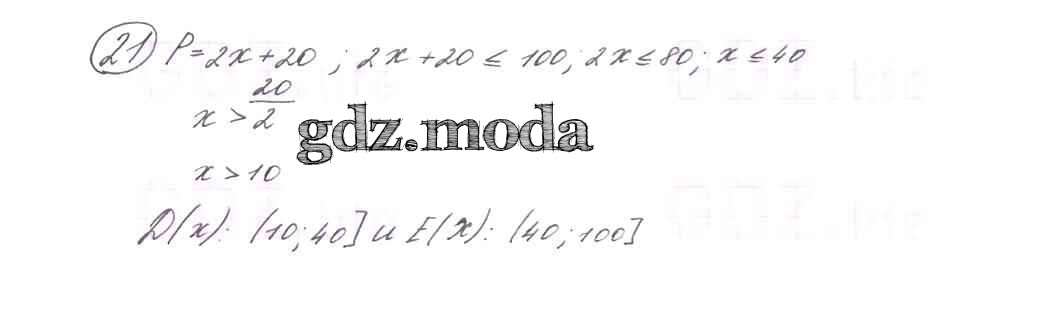 21) P=2x+20 ; 2x+20 ≤ 100; 2x ≤ 80; x ≤ 40
x > 20/2
gdz.moda
x > 10
D(x): (10; 40] и E(x): (40; 100]